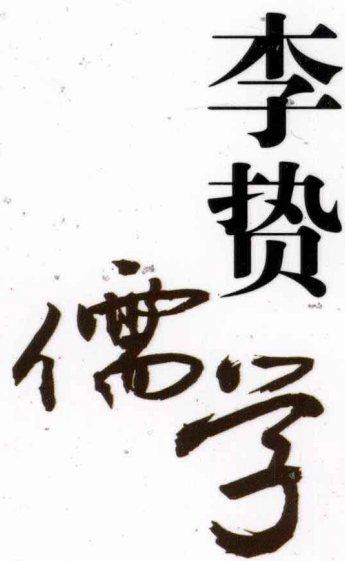 李贽
儒学